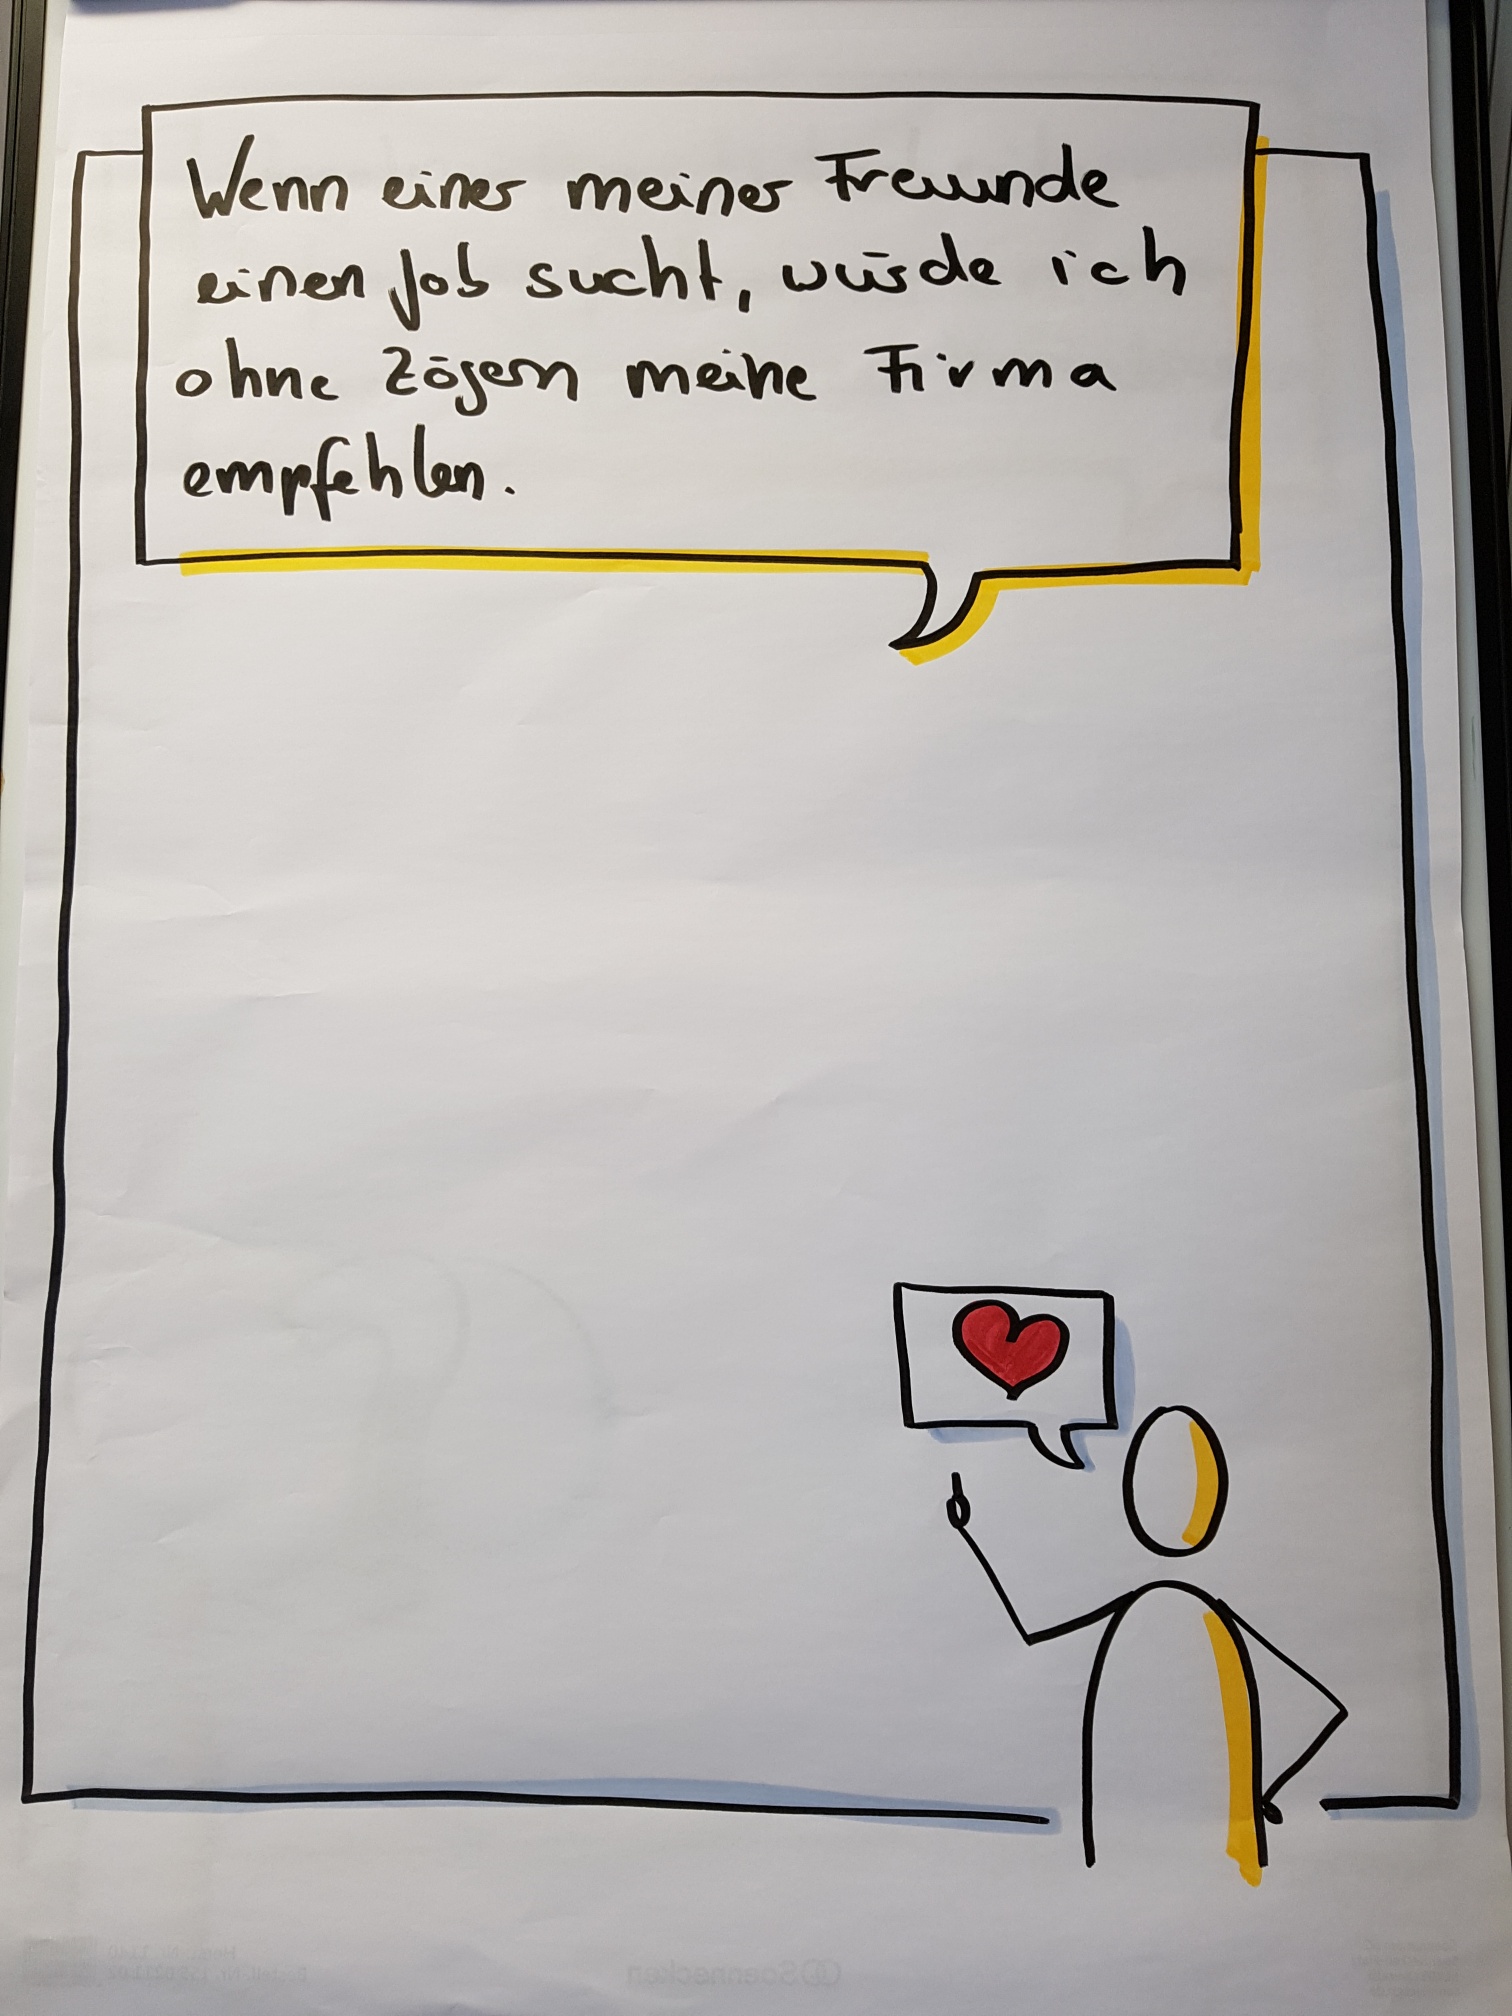 Wenn einer meiner Freunde
einen Job sucht, würde ich
ohne Zögern meine Firma
empfehlen.